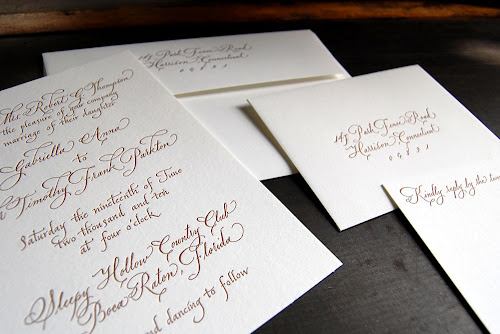 the pleasure of your company
marriage of their daughter
Gabriella Anne
to
Timothy Frank Parkton
Saturday the nineteenth of June
two thousand and ten
at four o'clock
Sleepy Hollow Country Club
Boca Raton, Florida
and dancing to follow
Road
Harrison, Connecticut
Road
Harrison, Connecticut
Kindly reply by the